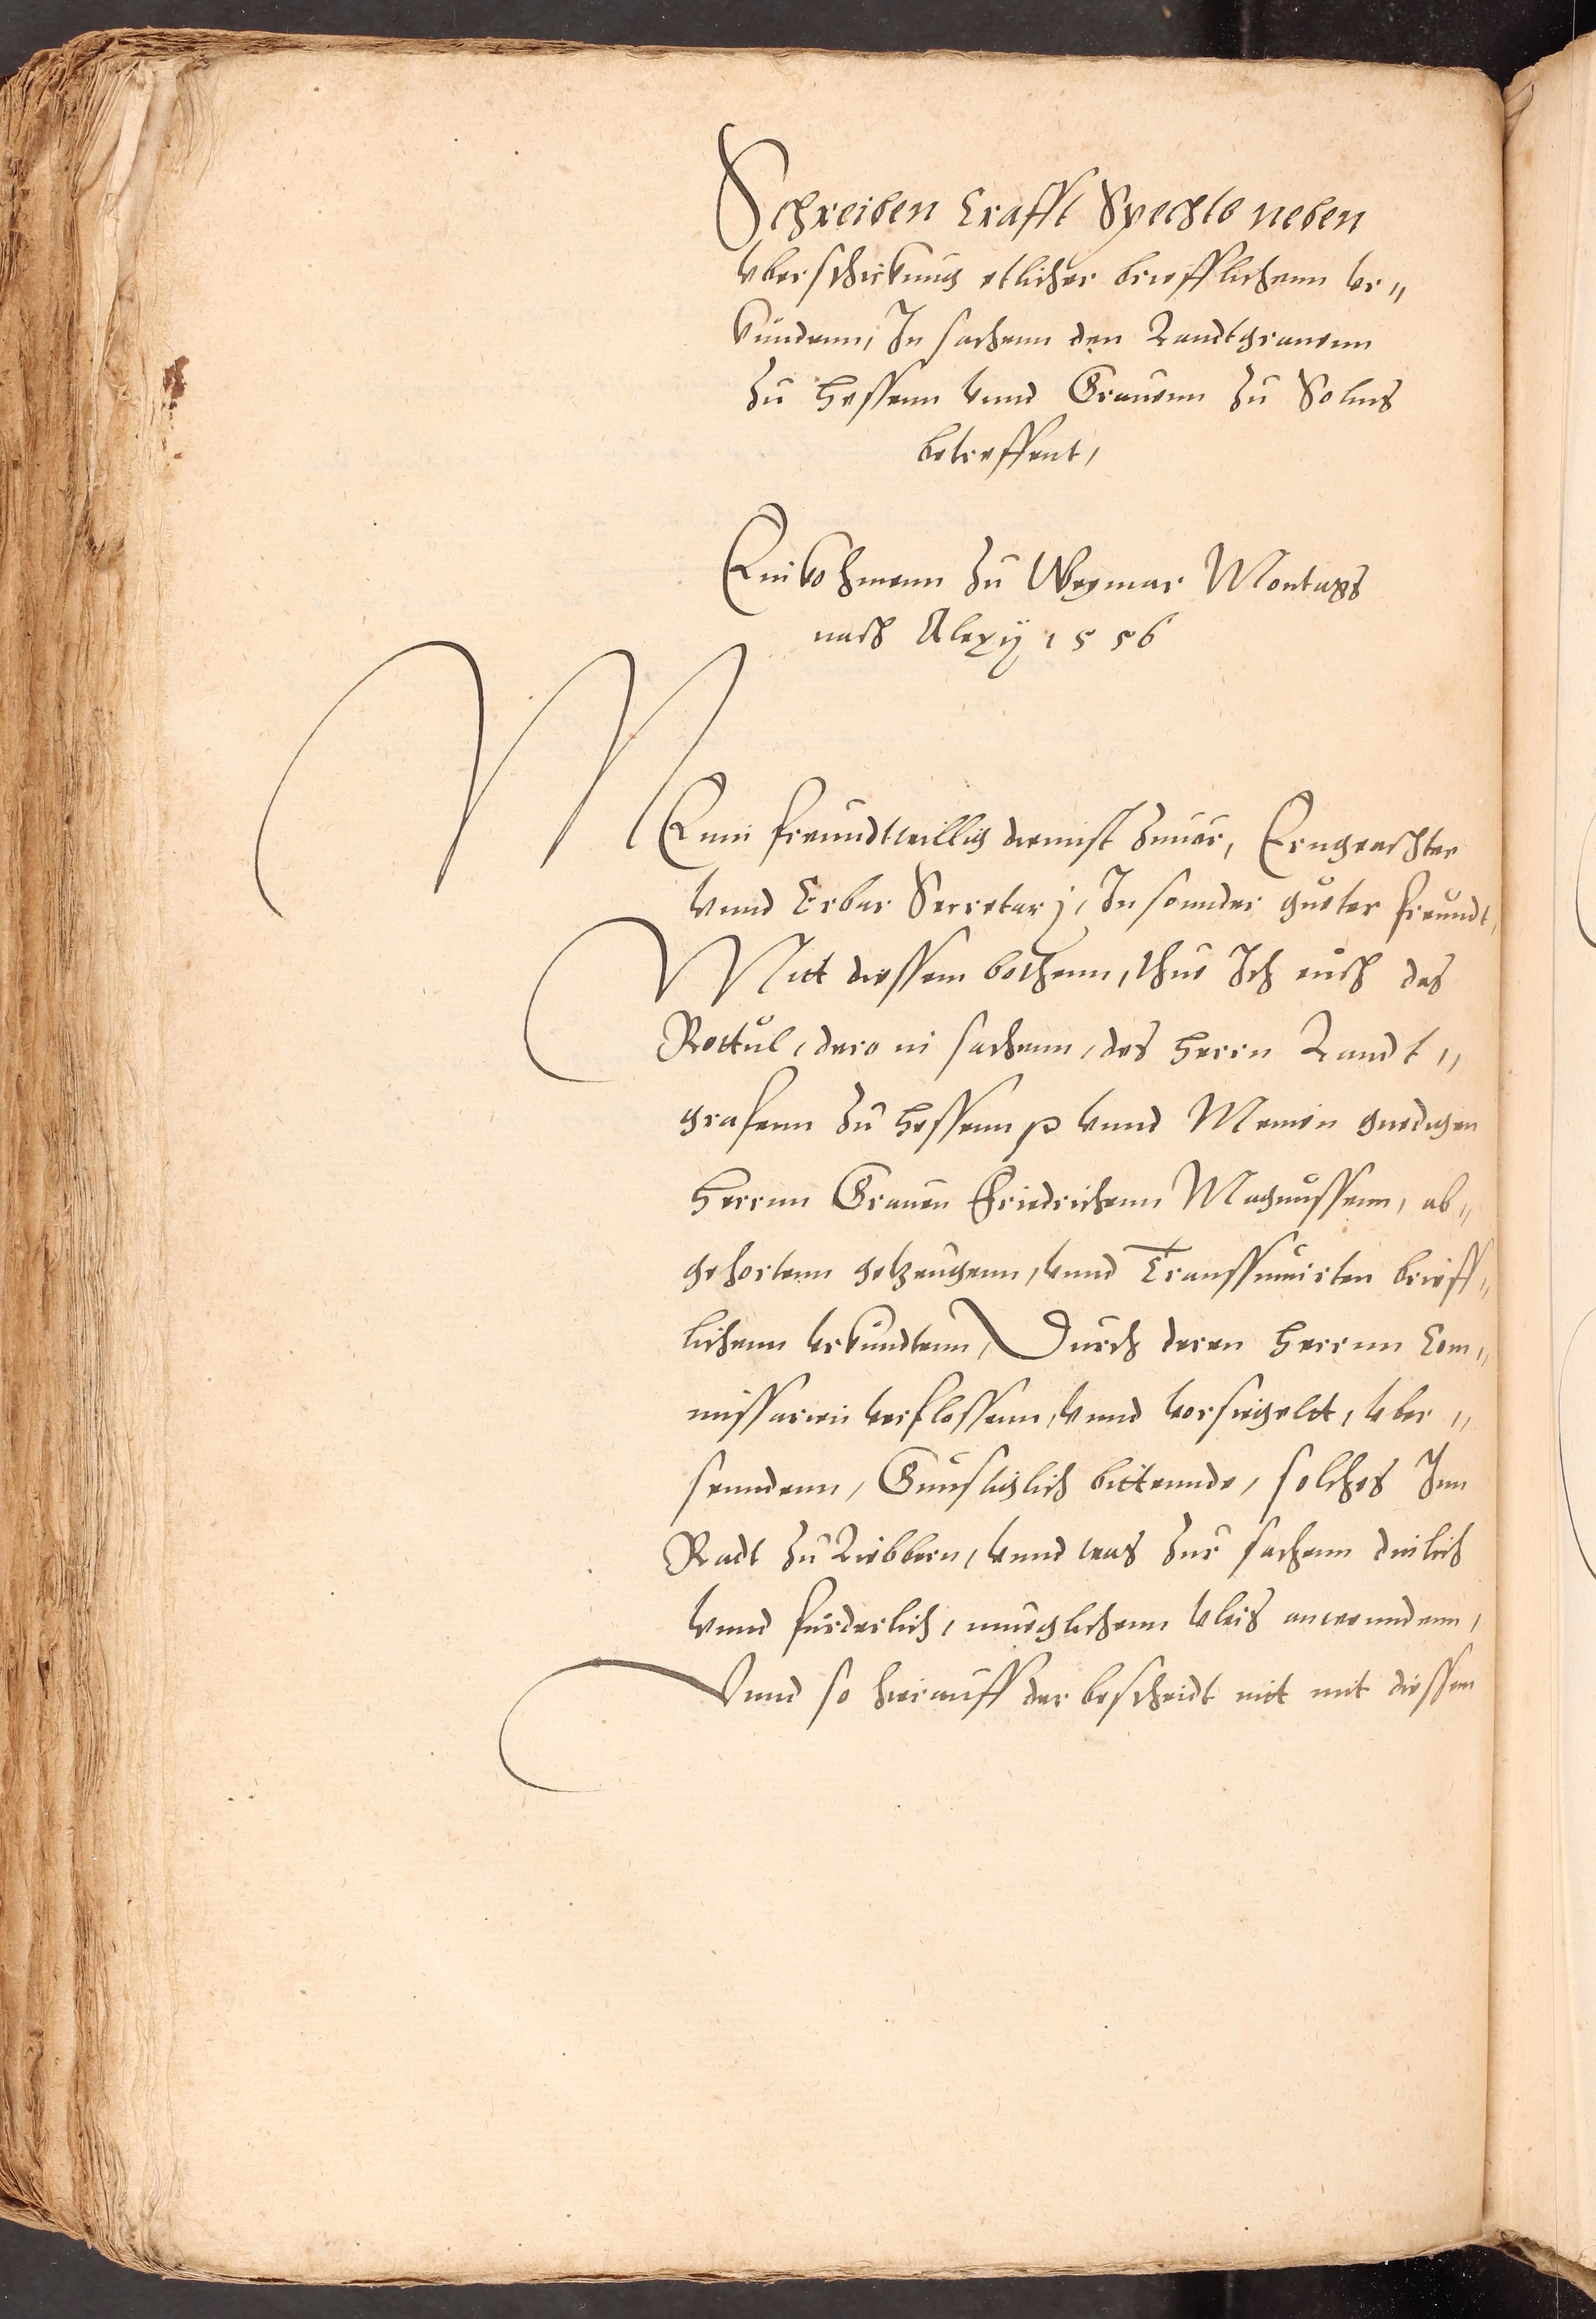 Schreiben Crafft Spechts neben
vberschickung etlicher briefflichenn vr„
kundenn, In sachenn den Landtgrauenn
zu Hessenn vnnd Grauenn zu Solms
betreffent,
Einkohmenn zu Weymar Montags
nach Alexÿ 1556
MEinn freundtwillig dinnst zuuor, Erngeachter
vnnd Erbar Secretarj, In sonnder gueter freundt,
Mitt diessem bothenn, thue Ich euch das
Rottul, dero in sachenn, des herrn Landt„
grafenn zu Hessenn p vnnd Meinen gnedigen
Herrnn Grauen Friedrichenn Magnussenn, ab„
gehortenn getzeugenn, vnnd Transsumirten brieff„
lichenn vrkundtenn, Durch deren Herrnn Com„
missarien verslossenn, vnnd vorsiegelt, vber„
senndenn, Gunstiglich bittennde, solches Inn
Radt zu Liebbern, vnnd was zur sachenn dinlich
vnnd furderlich, mueglichenn vleis anwenndenn,
Vnnd so hierauff der bescheidt nitt mit diessem